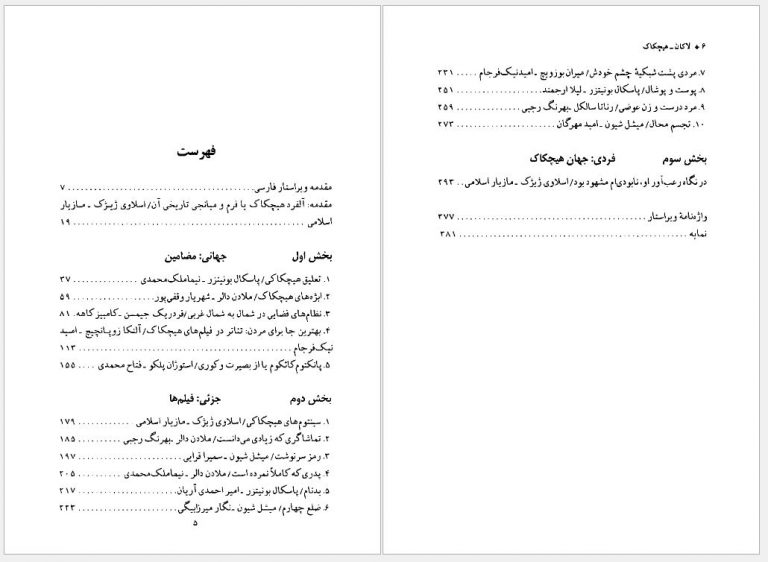 فهرست
مقدمه ویراستار فارسی ........................................... ۷
مقدمه: آلفرد هیچکاک یا فرم و میانجی تاریخی آن/ اسلاوی ژیژک ـ مازیار
اسلامی ........................................................ ۱۹
بخش اول جهانی: مضامین
۱. تعلیق هیچکاکی/ پاسکال بونیتزر ـ نیما ملک‌محمدی ............... ۳۷
۲. ابژه‌های هیچکاک/ ملادن دالر ـ شهریار وقفی‌پور ................... ۵۹
۳. نظام‌های فضایی در شمال به شمال غربی/فردریک جیمسن ـ کامبیز کاهه. ۸۱
۴. بهترین جا برای مردن: تئاتر در فیلم‌های هیچکاک/ آلنکا زوپانچیچ ـ امید
نیک‌فرجام ..................................................... ۱۱۳
۵. پانکتوم کائکوم یا از بصیرت و کوری/ استوژان پلکو ـ فتاح محمدی .... ۱۵۵
بخش دوم جزئی: فیلم‌ها
۱. سینتوم‌های هیچکاکی/ اسلاوی ژیژک ـ مازیار اسلامی ............ ۱۷۹
۲. تماشاگری که زیادی می‌دانست/ ملادن دالر ـ بهرنگ رجبی .......... ۱۸۵
۳. رمز سرنوشت/ میشل شیون ـ سمیرا قرایی ......................... ۱۹۷
۴. پدری که کاملاً نمرده است/ ملادن دالر ـ نیما ملک‌محمدی ........... ۲۰۵
۵. بدنام/ پاسکال بونیتزر ـ امیر احمدی آریان ....................... ۲۱۷
۶. ضلع چهارم/ میشل شیون ـ نگار میرزابیگی ....................... ۲۲۳
۵
۶ ♦ لاکان ـ هیچکاک
۷. مردی پشت شبکیهٔ چشم خودش/ میران بوزوویچ ـ امید نیک‌فرجام ..... ۲۳۱
۸. پوست و پوشال/ پاسکال بونیتزر ـ لیلا ارجمند .................... ۲۵۱
۹. مرد درست و زن عوضی/ رناتا سالکل ـ بهرنگ رجبی ............... ۲۵۹
۱۰. تجسم محال/ میشل شیون ـ امید مهرگان ....................... ۲۷۳
بخش سوم فردی: جهان هیچکاک
در نگاه رعب‌آور او، نابودی‌ام مشهود بود/ اسلاوی ژیژک ـ مازیار اسلامی .. ۲۹۳
واژه‌نامهٔ ویراستار ............................................. ۳۷۷
نمایه ......................................................... ۳۸۱